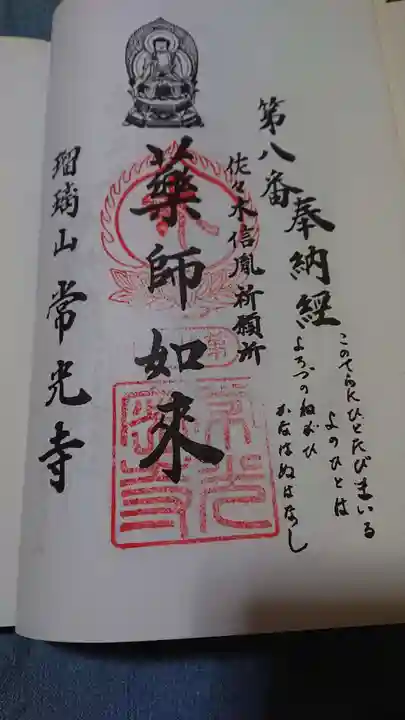 第八番
奉納経
このてらにひとたびまいる
よのひとは
よろづのねがひ
かなはぬはなし
佐々木信胤祈願所
薬師如来
瑠璃山 常光寺